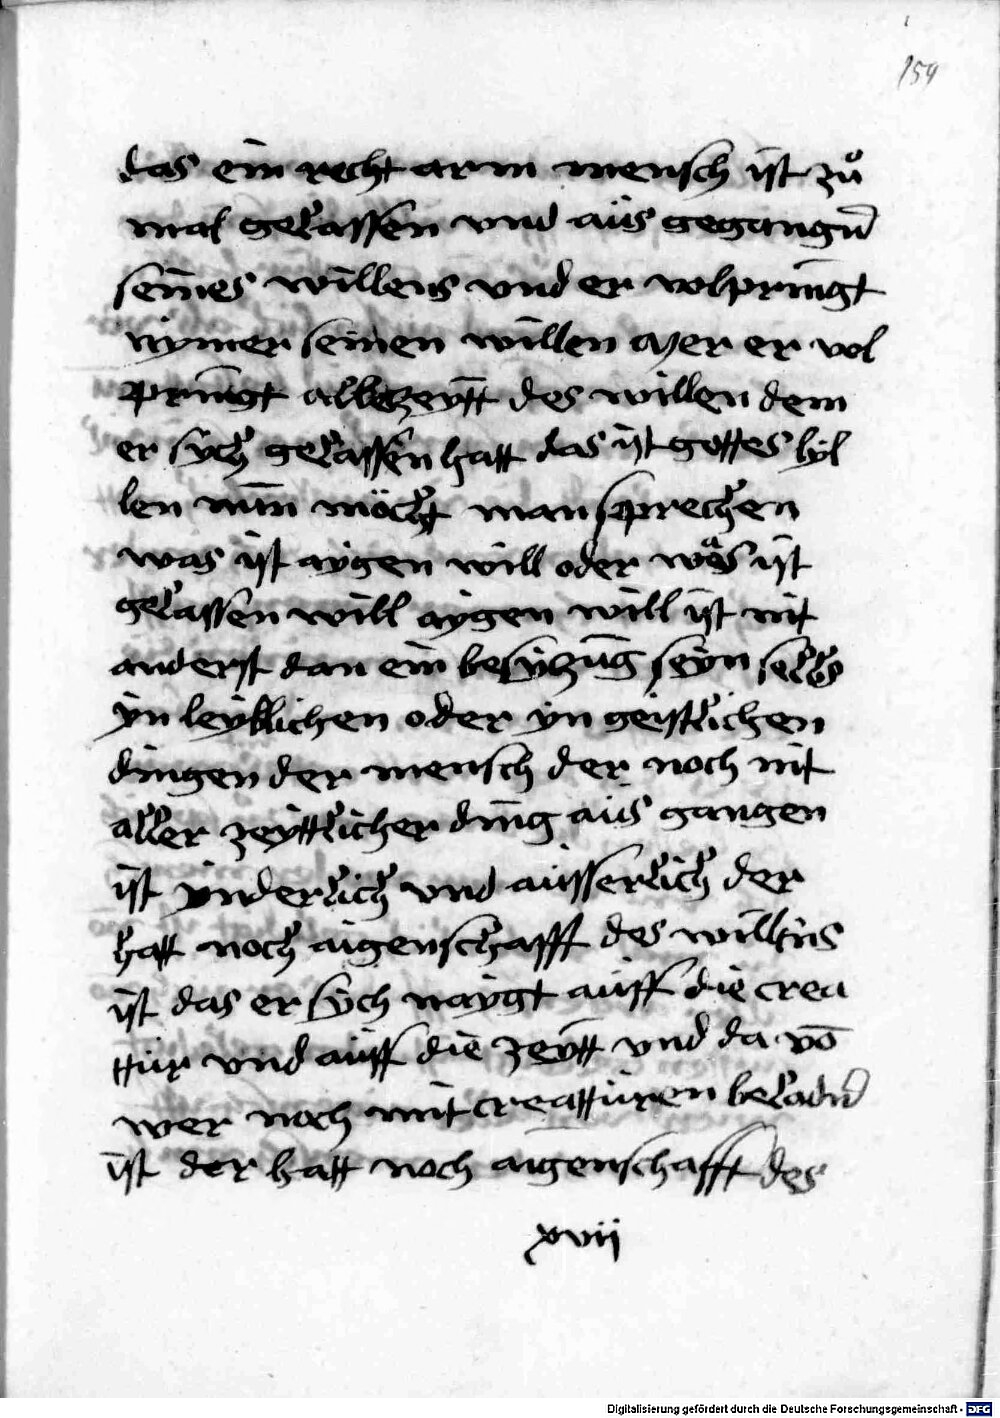 159
das ein recht arm mensch ist zuͦ
mal gelassen vnd aüs gegangn̄
seines willens vnd er volpringt
nÿmer seinen willen aỽer er vol
pringt allbezeÿtt des willen dem
er sÿch gelassen hatt das ÿst gottes wÿl
len nūn möcht man sprechen
was ÿst aÿgen will oder was ÿst
gelassen will aÿgen will ist nit
anderst dan ein besÿtzūg seyn selbs
ÿn leÿblichen oder ÿn geistlichen
dingen der mensch der noch nit
aller zeÿttlicher ding aüs gangen
ist ÿnderlich vnd aüsserlich der
hatt noch aigenschafft des willens
ist das er sÿch naÿgt aüff die crea
ttür vnd aüff die zeÿtt vnd da vō
wer noch mit creattüren beladn̄
ist der hatt noch aigenschafft des
xvii
Digitalisierung gefördert durch die Deutsche Forschungsgemeinschaft - DFG